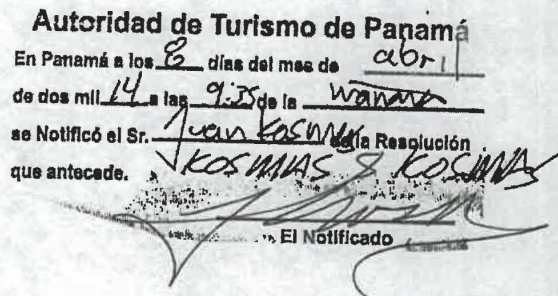 Autoridad de Turismo de Panamá
En Panamá a los 8 días del mes de abril
de dos mil 14 a las 9:35 de la manana
se Notificó el Sr. Juan Kosmas de la Resolución
que antecede. KOSMAS & KOSMAS
El Notificado